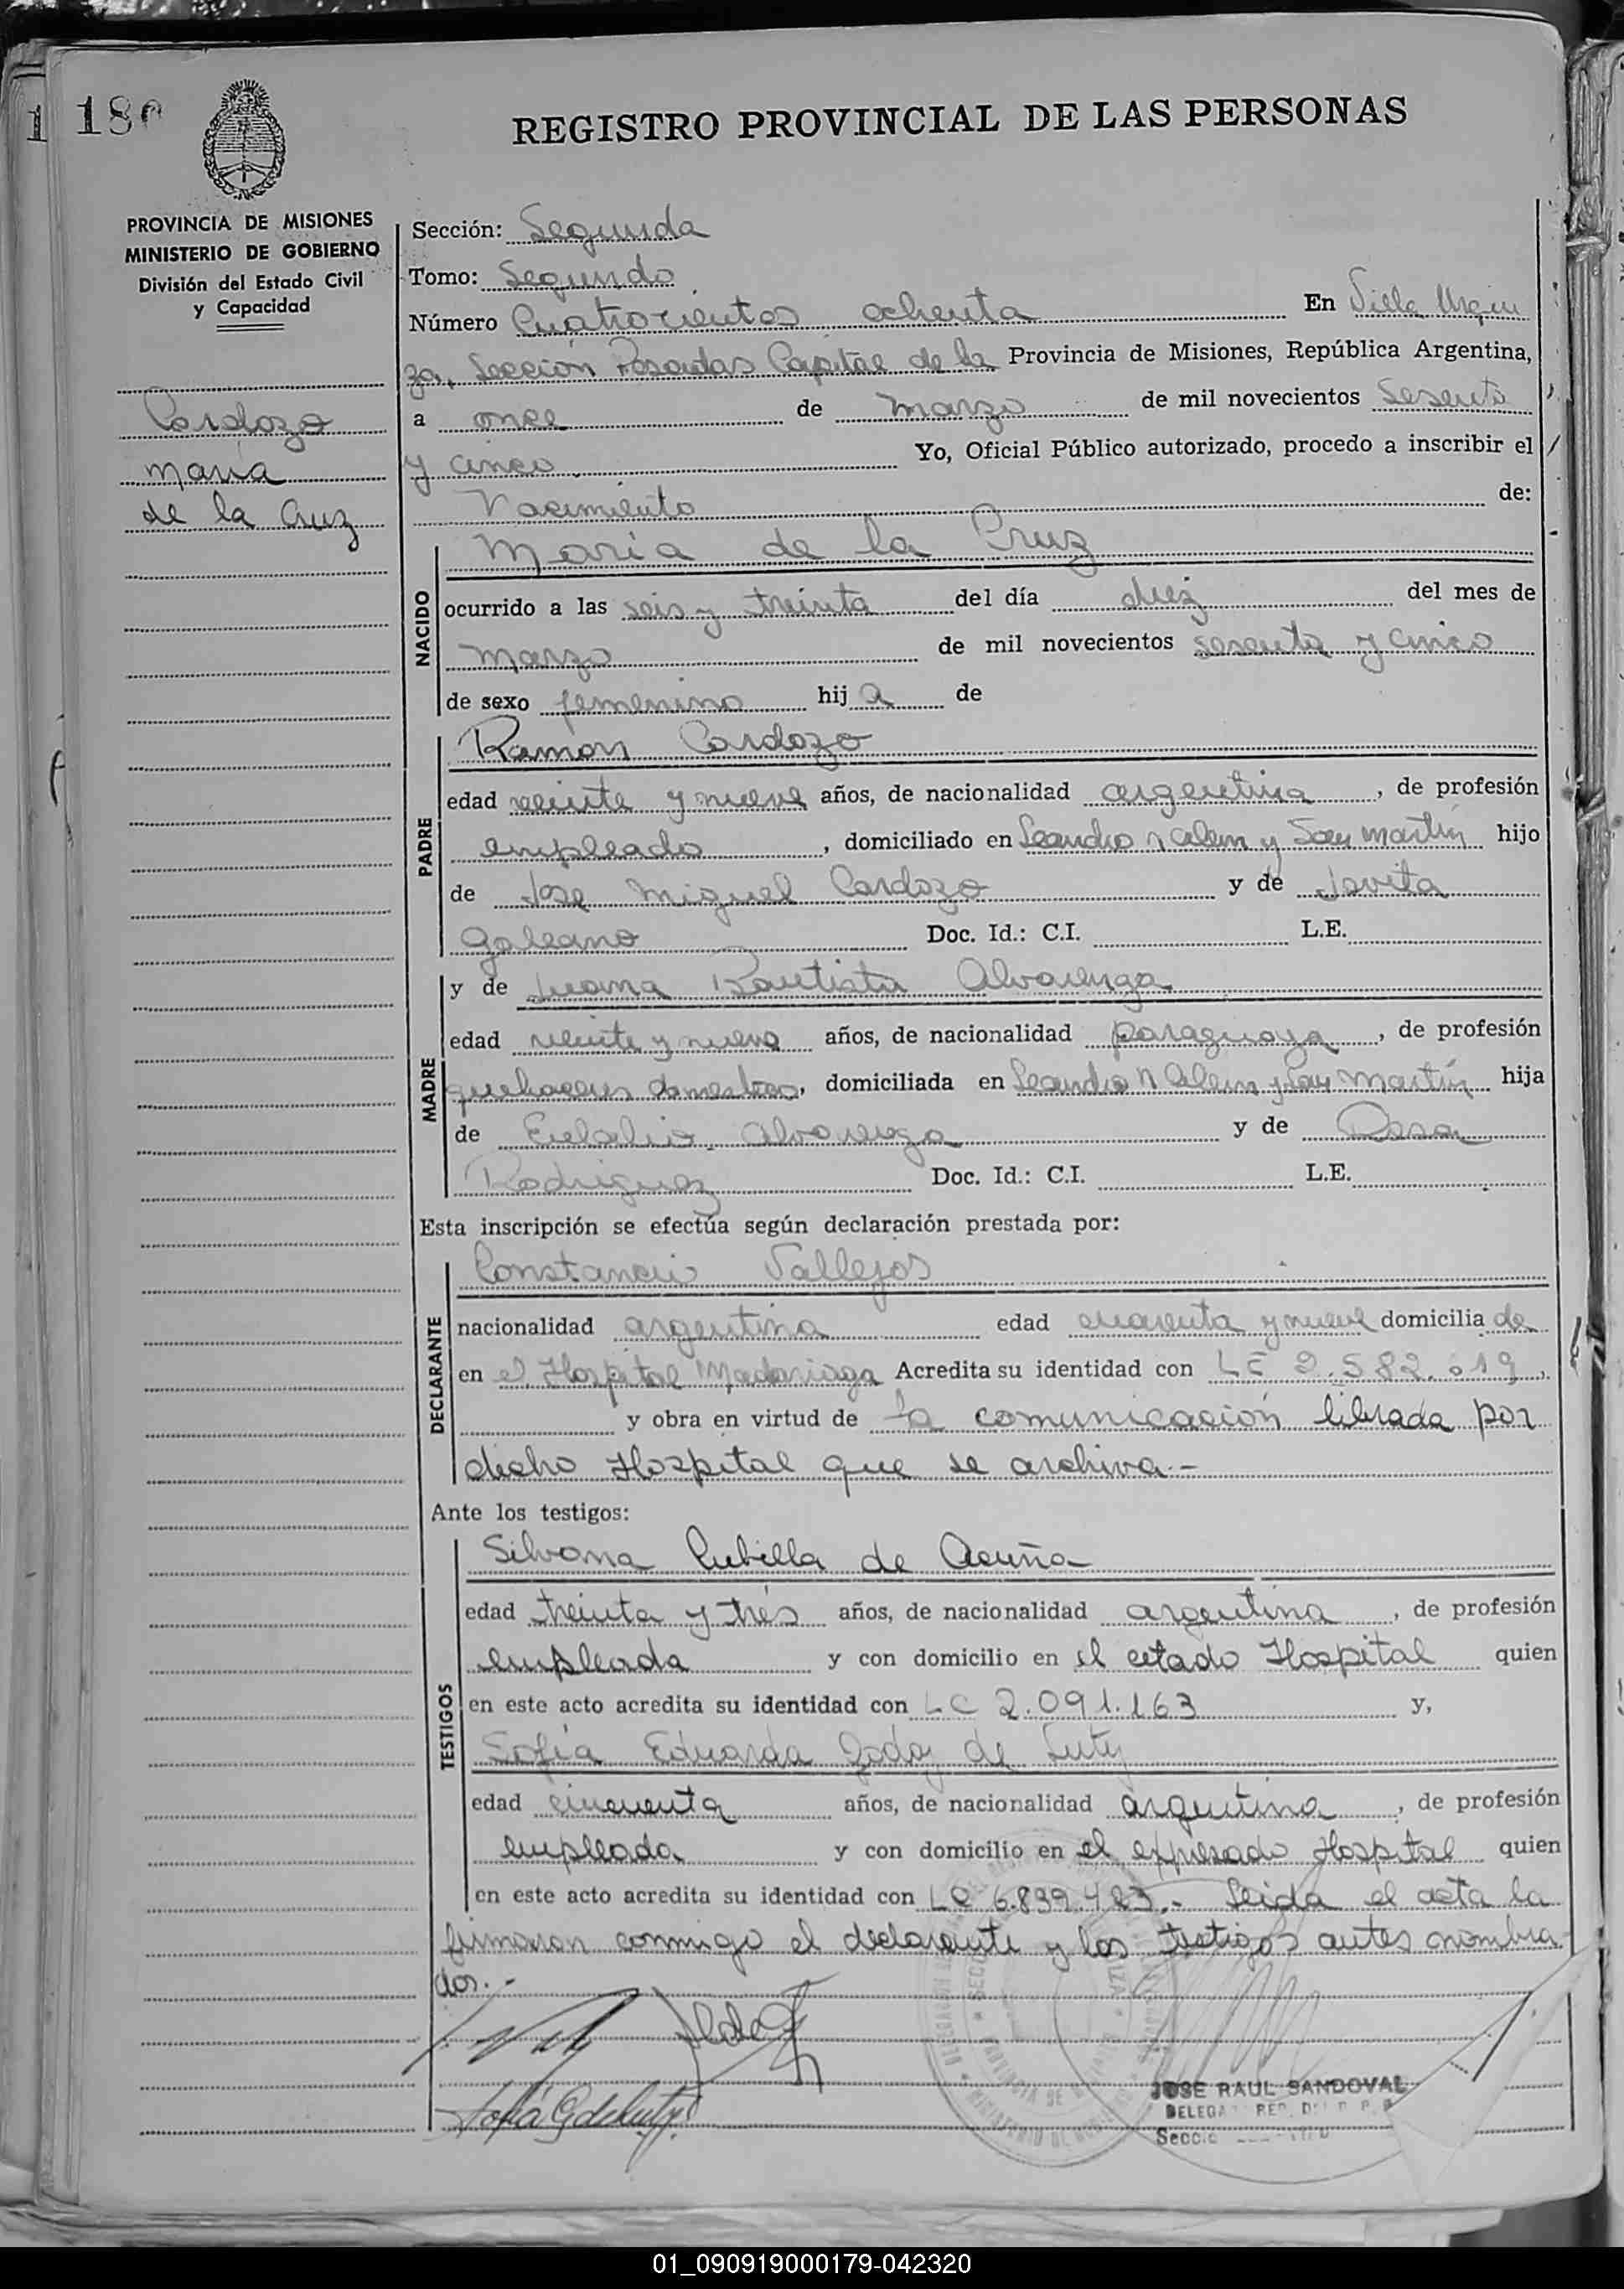 180
REGISTRO PROVINCIAL DE LAS PERSONAS
PROVINCIA DE MISIONES
MINISTERIO DE GOBIERNO
División del Estado Civil
y Capacidad
Cardozo
Maria
de la Cruz
Sección: Segunda
Tomo: Segundo
Número Cuatrocientos ochenta En Villa Urqui
za, Sección Posadas Capital de la Provincia de Misiones, República Argentina,
a once de marzo de mil novecientos sesenta
y cinco Yo, Oficial Público autorizado, procedo a inscribir el
Nacimiento de:
NACIDO
Maria de la Cruz
ocurrido a las seis y treinta del día diez del mes de
marzo de mil novecientos sesenta y cinco
de sexo femenino hij a de
PADRE
Ramon Cardozo
edad veinte y nueve años, de nacionalidad argentina, de profesión
empleado, domiciliado en Leandro N Alem y San Martin hijo
de Jose Miguel Cardozo y de Jovita
Galeano Doc. Id.: C.I. L.E.
MADRE
y de Juana Bautista Alvarenga
edad veinte y nueve años, de nacionalidad paraguaya, de profesión
quehaceres domesticos, domiciliada en Leandro N Alem y San Martin hija
de Eulalio Alvarenga y de Rosa
Rodriguez Doc. Id.: C.I. L.E.
Esta inscripción se efectúa según declaración prestada por:
DECLARANTE
Constancio Vallejos
nacionalidad argentina edad cuarenta y nueve domicilia do
en el Hospital Madariaga Acredita su identidad con LE 2.582.019,
y obra en virtud de la comunicación librada por
dicho Hospital que se archiva.-
Ante los testigos:
TESTIGOS
Silvana Cubilla de Acuña
edad treinta y tres años, de nacionalidad argentina, de profesión
empleada y con domicilio en el citado Hospital quien
en este acto acredita su identidad con LC 2.091.163 y,
Sofia Eduarda Godoy de Luty
edad cincuenta años, de nacionalidad argentina, de profesión
empleada y con domicilio en el expresado Hospital quien
en este acto acredita su identidad con LC 6.839.483.- Leida el acta la
firmaron conmigo el declarante y los testigos antes nombra
dos.-
Sofia G de Luty
JOSE RAUL SANDOVAL
01_090919000179-042320